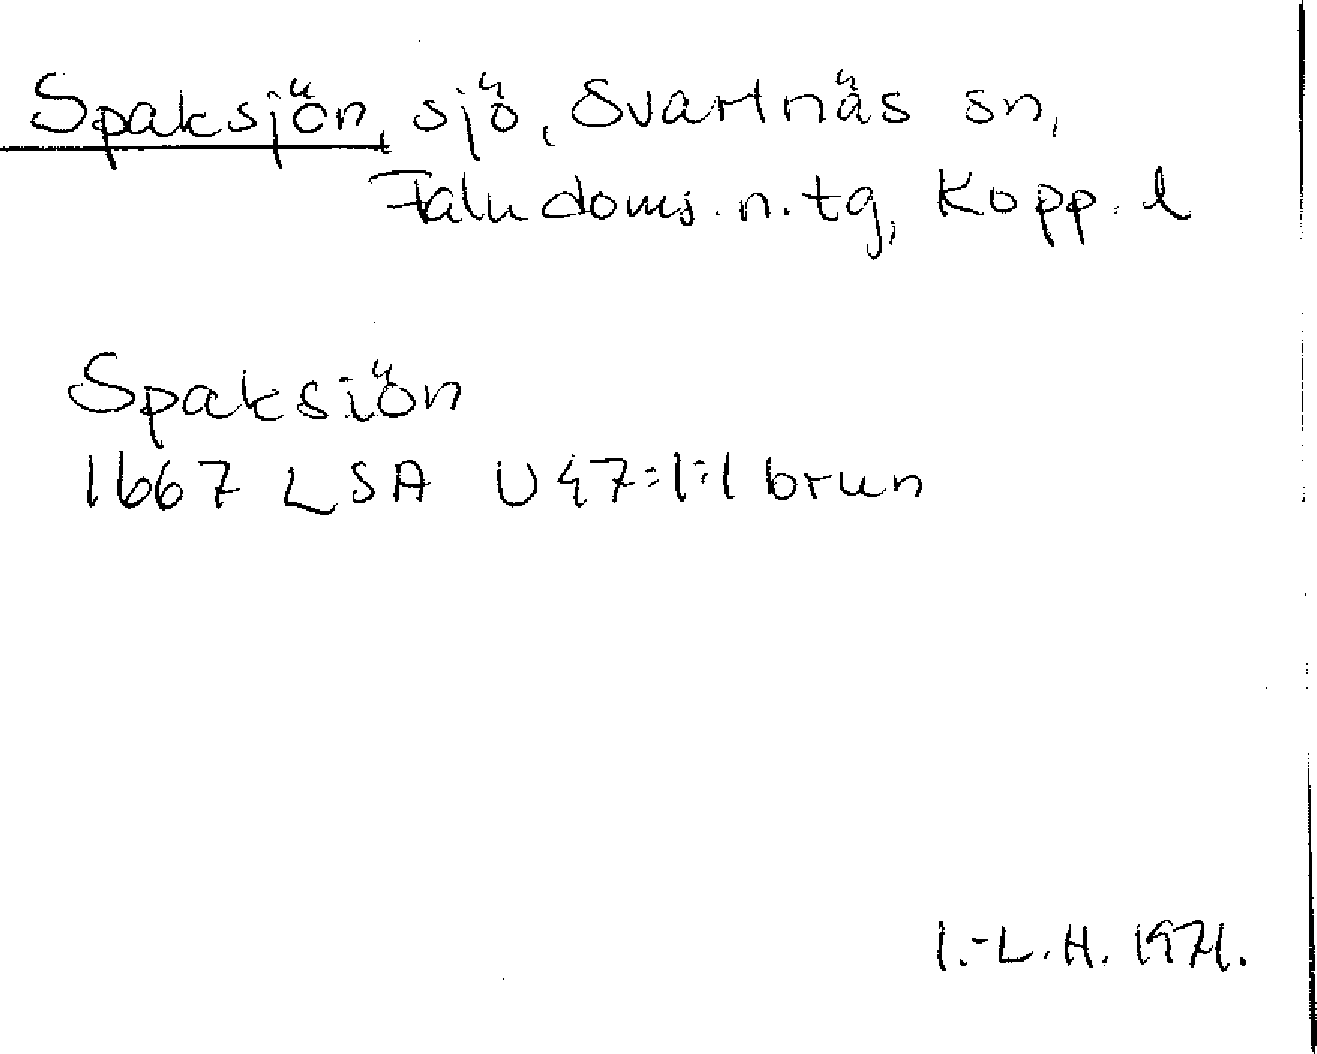 Spaksjön, sjö, Svartnäs sn,
Falu doms. n. tg, Kopp. l
Spaksiön
1667 LSA U47:1:1 brun
I.-L.H. 1971.